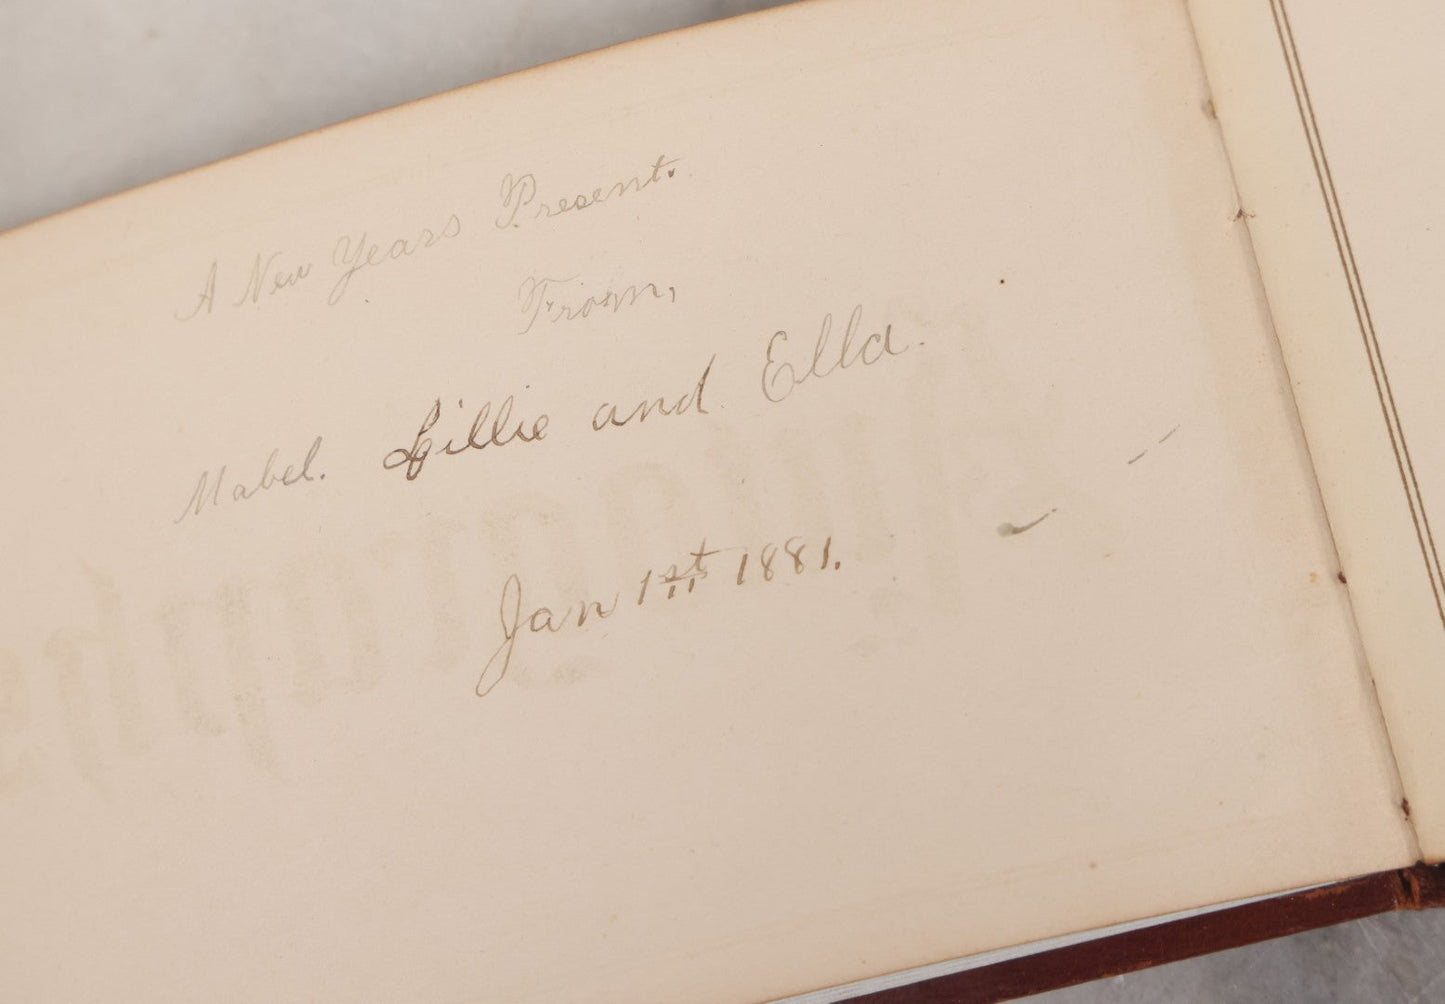 A New Years Present.
From,
Mabel. Lillie and Ella.
Jan 1st 1881.